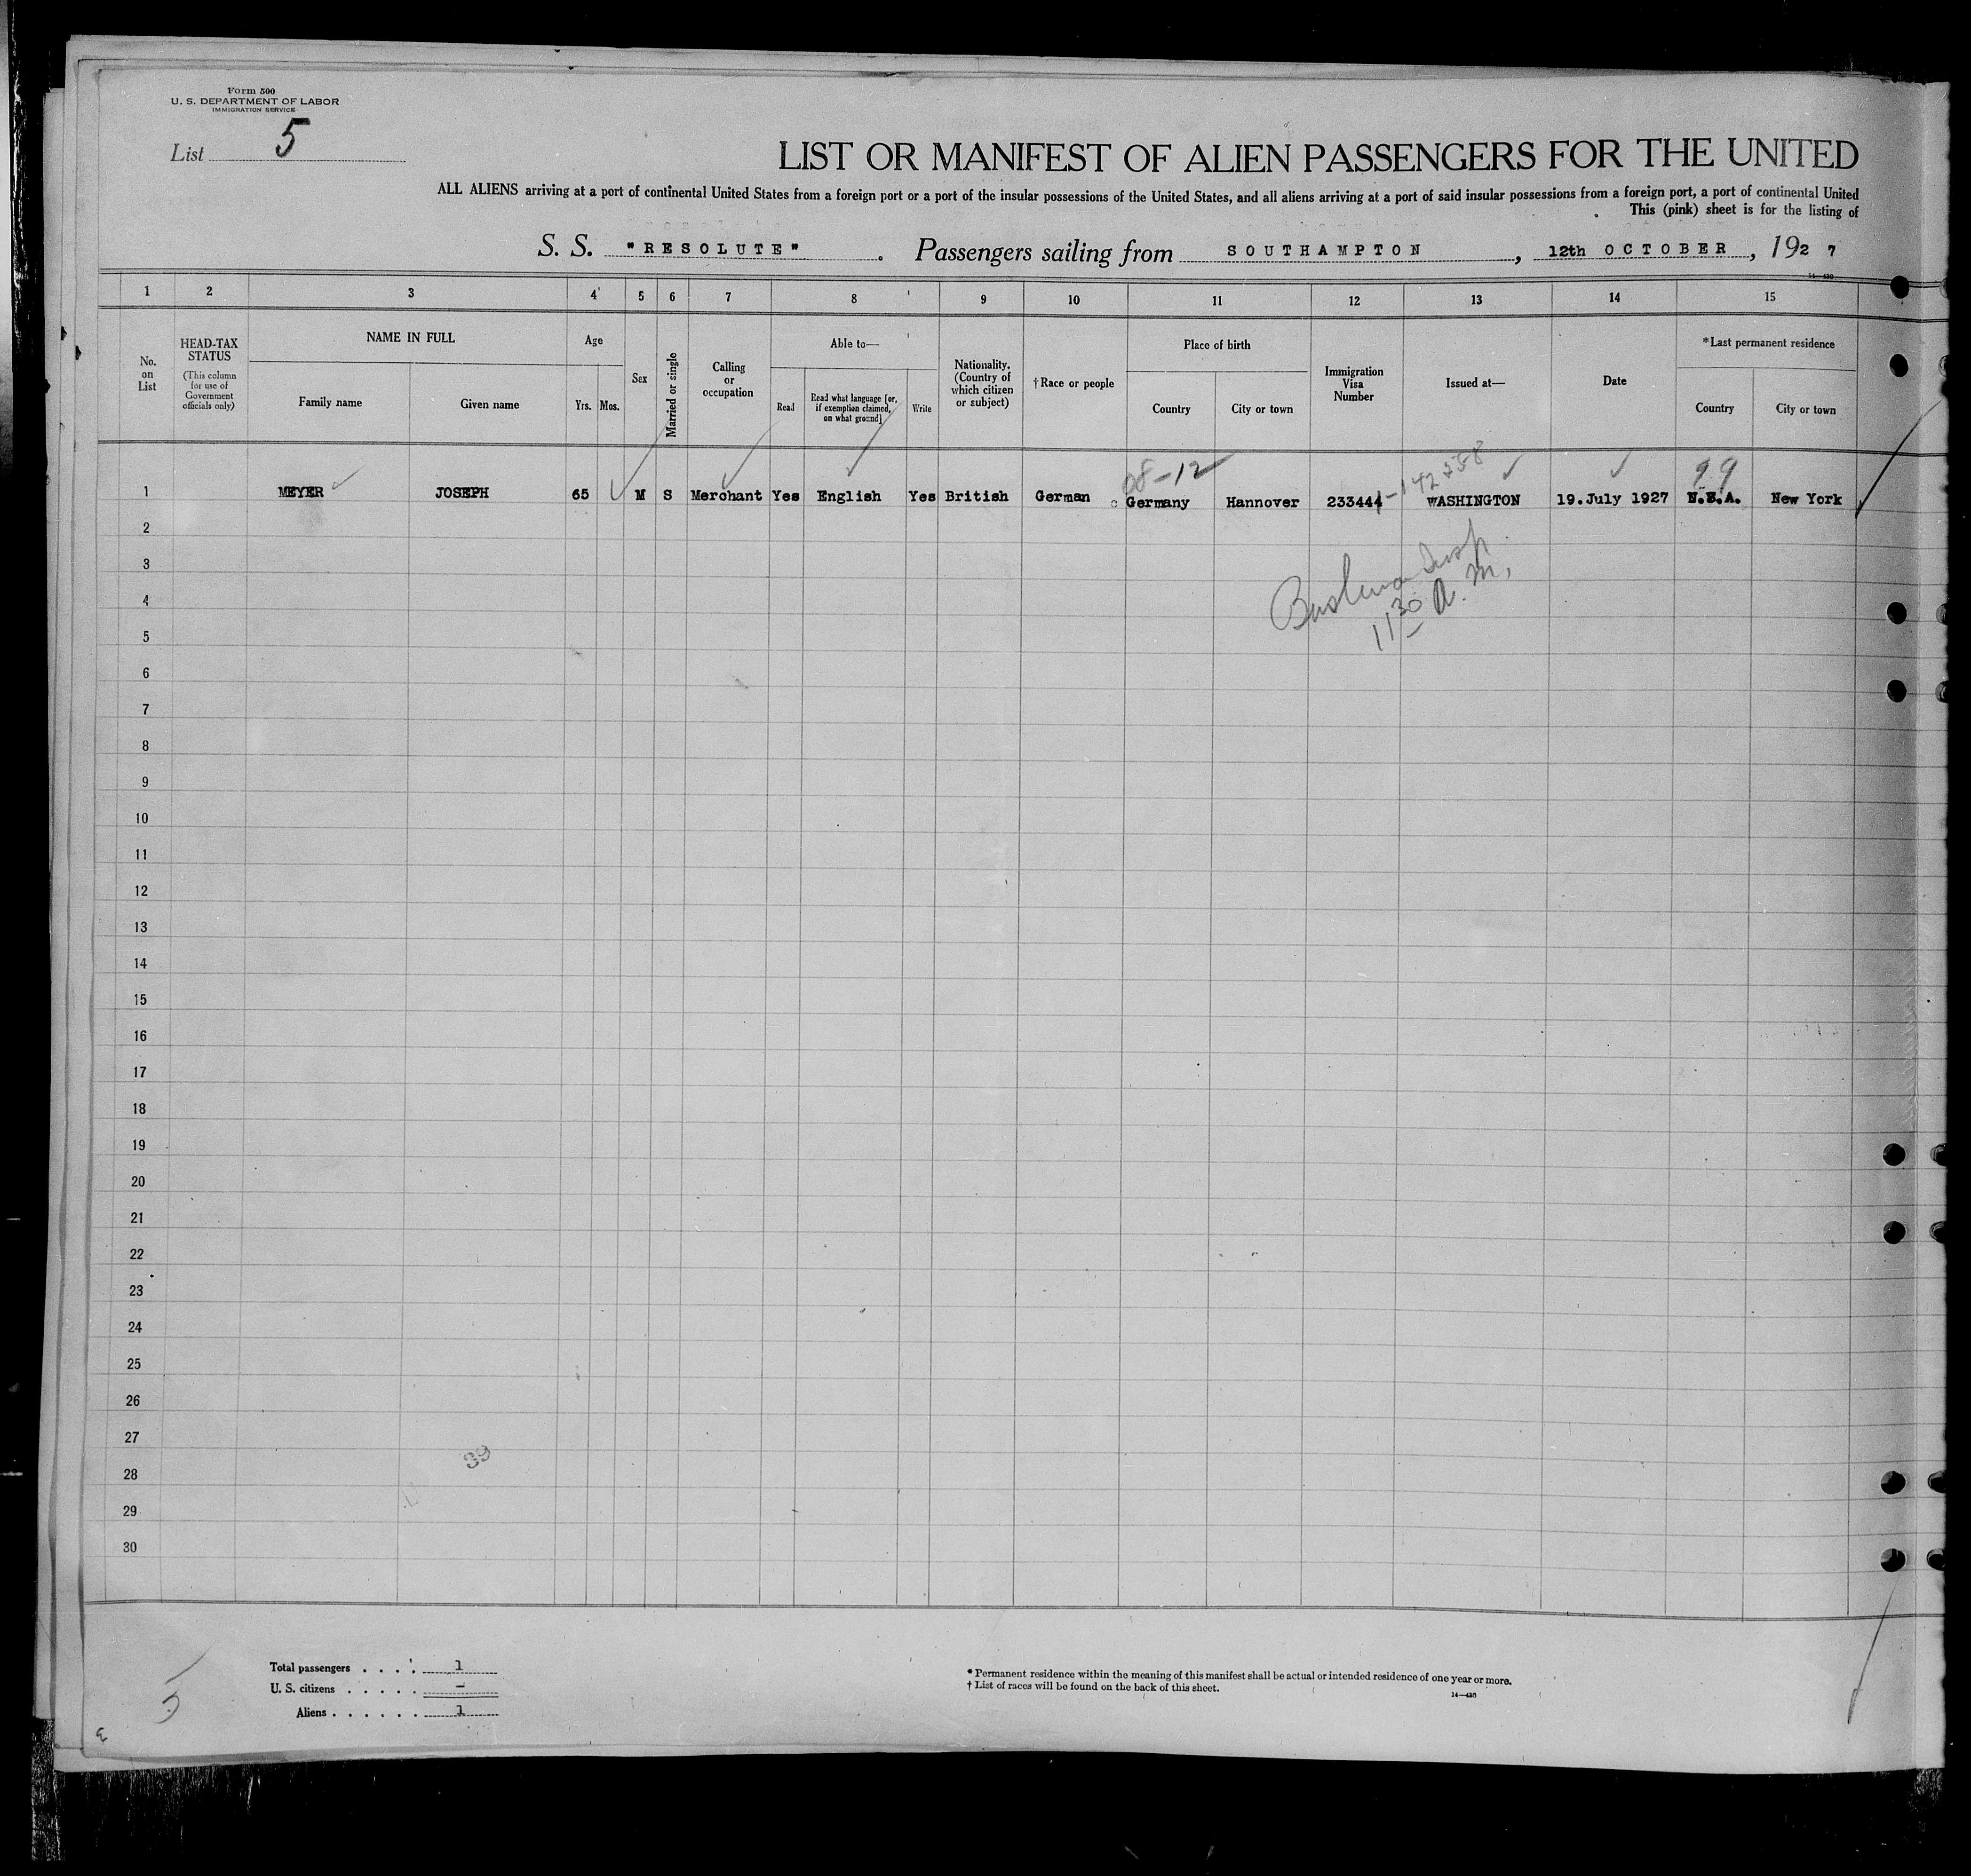 Form 500
U. S. DEPARTMENT OF LABOR
IMMIGRATION SERVICE
List 5
LIST OR MANIFEST OF ALIEN PASSENGERS FOR THE UNITED
ALL ALIENS arriving at a port of continental United States from a foreign port or a port of the insular possessions of the United States, and all aliens arriving at a port of said insular possessions from a foreign port, a port of continental United
This (pink) sheet is for the listing of
S. S. "RESOLUTE". Passengers sailing from SOUTHAMPTON, 12th OCTOBER, 1927
1 2 3 4 5 6 7 8 9 10 11 12 13 14 15
No. on List
HEAD-TAX STATUS
(This column for use of Government officials only)
NAME IN FULL
Family name
Given name
Age
Yrs. Mos.
Sex
Married or single
Calling or occupation
Able to—
Read
Read what language [or, if exemption claimed, on what ground]
Write
Nationality. (Country of which citizen or subject)
†Race or people
Place of birth
Country
City or town
Immigration Visa Number
Issued at—
Date
*Last permanent residence
Country
City or town
08-12
142258
99
1 MEYER JOSEPH 65 M S Merchant Yes English Yes British German Germany Hannover 233444 WASHINGTON 19.July 1927 New York
2
3
4
11 30 A. M.
5
6
7
8
9
10
11
12
13
14
15
16
17
18
19
20
21
22
23
24
25
26
27
39
28
29
30
Total passengers . . . . 1
U. S. citizens . . . . . –
Aliens . . . . . . 1
5
* Permanent residence within the meaning of this manifest shall be actual or intended residence of one year or more.
† List of races will be found on the back of this sheet.
14—430